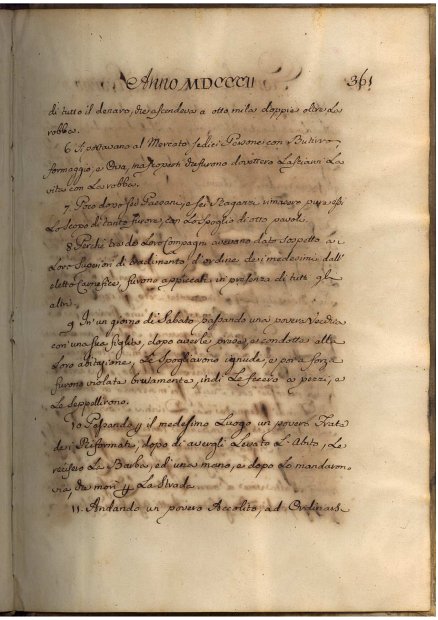 Anno MDCCCII 361
di tutto il denaro, che ascendeva a otto mila doppie oltre la
robba.
6. Portavano al Mercato sedici Persone con Butirro,
formaggio, e Ova, ma scoperti che furono dovettero Lasciarvi La
vita con La robba.
7. Poco dopo sei Paesani, e sei Ragazzi rimasero pure essi
Lo scopo di tanto furore, con Lo spoglio di otto paoli.
8. Perchè tre de Loro Compagni avevano dato sospetto a i
Loro Superiori di tradimento, d'ordine dei medesimi dall'
eletto Carnefice, furono appiccati in presenza di tutti gli
altri.
9. In un giorno di Sabato passando una povera Vecchia
con una sua figlia, dopo averle prese, e condotte alla
Loro abitazione, Le spogliarono ignude, e poi a forza
furono violate brutamente, indi Le fecero a pezzi, e
Le seppellirono.
10. Passando p il medesimo Luogo un povero Frate
dei Riformati, dopo di avergli Levato L'Abito, Le
recisero La Barba, ed una mano, e dopo Lo mandaron
via, che morì p La strada.
11. Andando un povero Accolito, ad Ordinarse